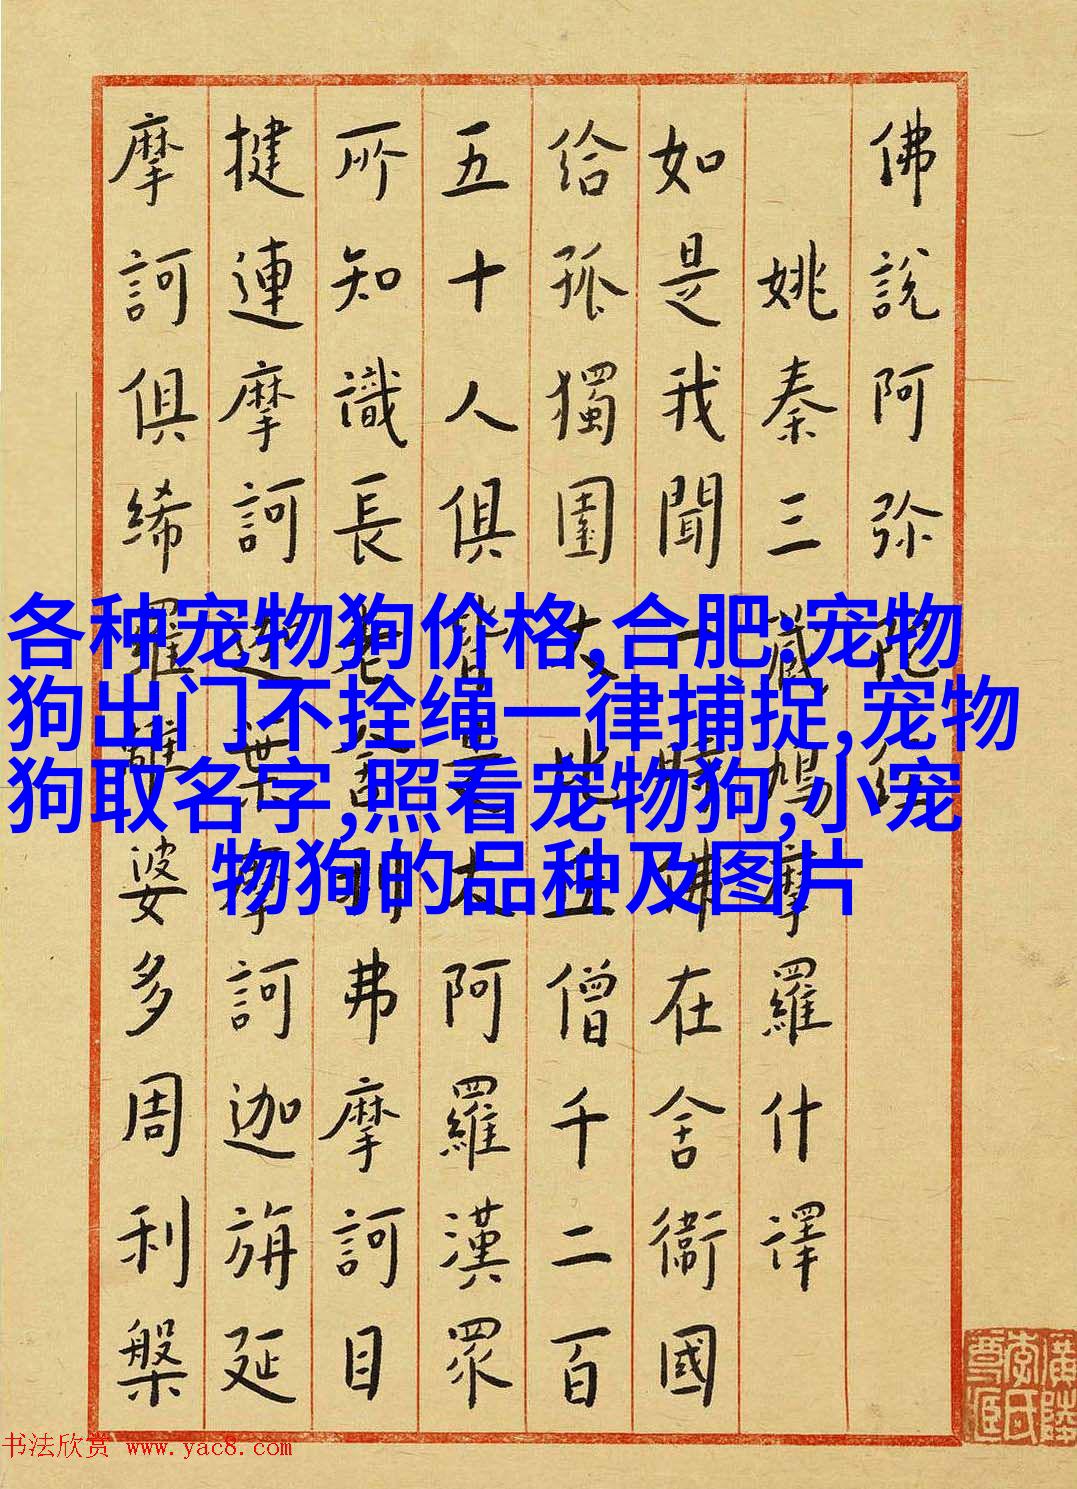 佛說阿弥陀經
姚秦三藏鳩摩羅什譯
如是我聞一時佛在舍衞國
给孤獨園大比丘僧千二百
五十人俱皆是大阿羅漢眾
所知識長老舍利弗摩訶目
揵連摩訶迦葉摩訶迦旃延
摩訶俱絺羅離婆多周利槃
各种宠物狗价格,合肥:宠物
狗出门不拴绳一律捕捉,宠物
狗取名字,照看宠物狗,小宠
物狗的品种及图片
书法欣赏 www.yac8.com